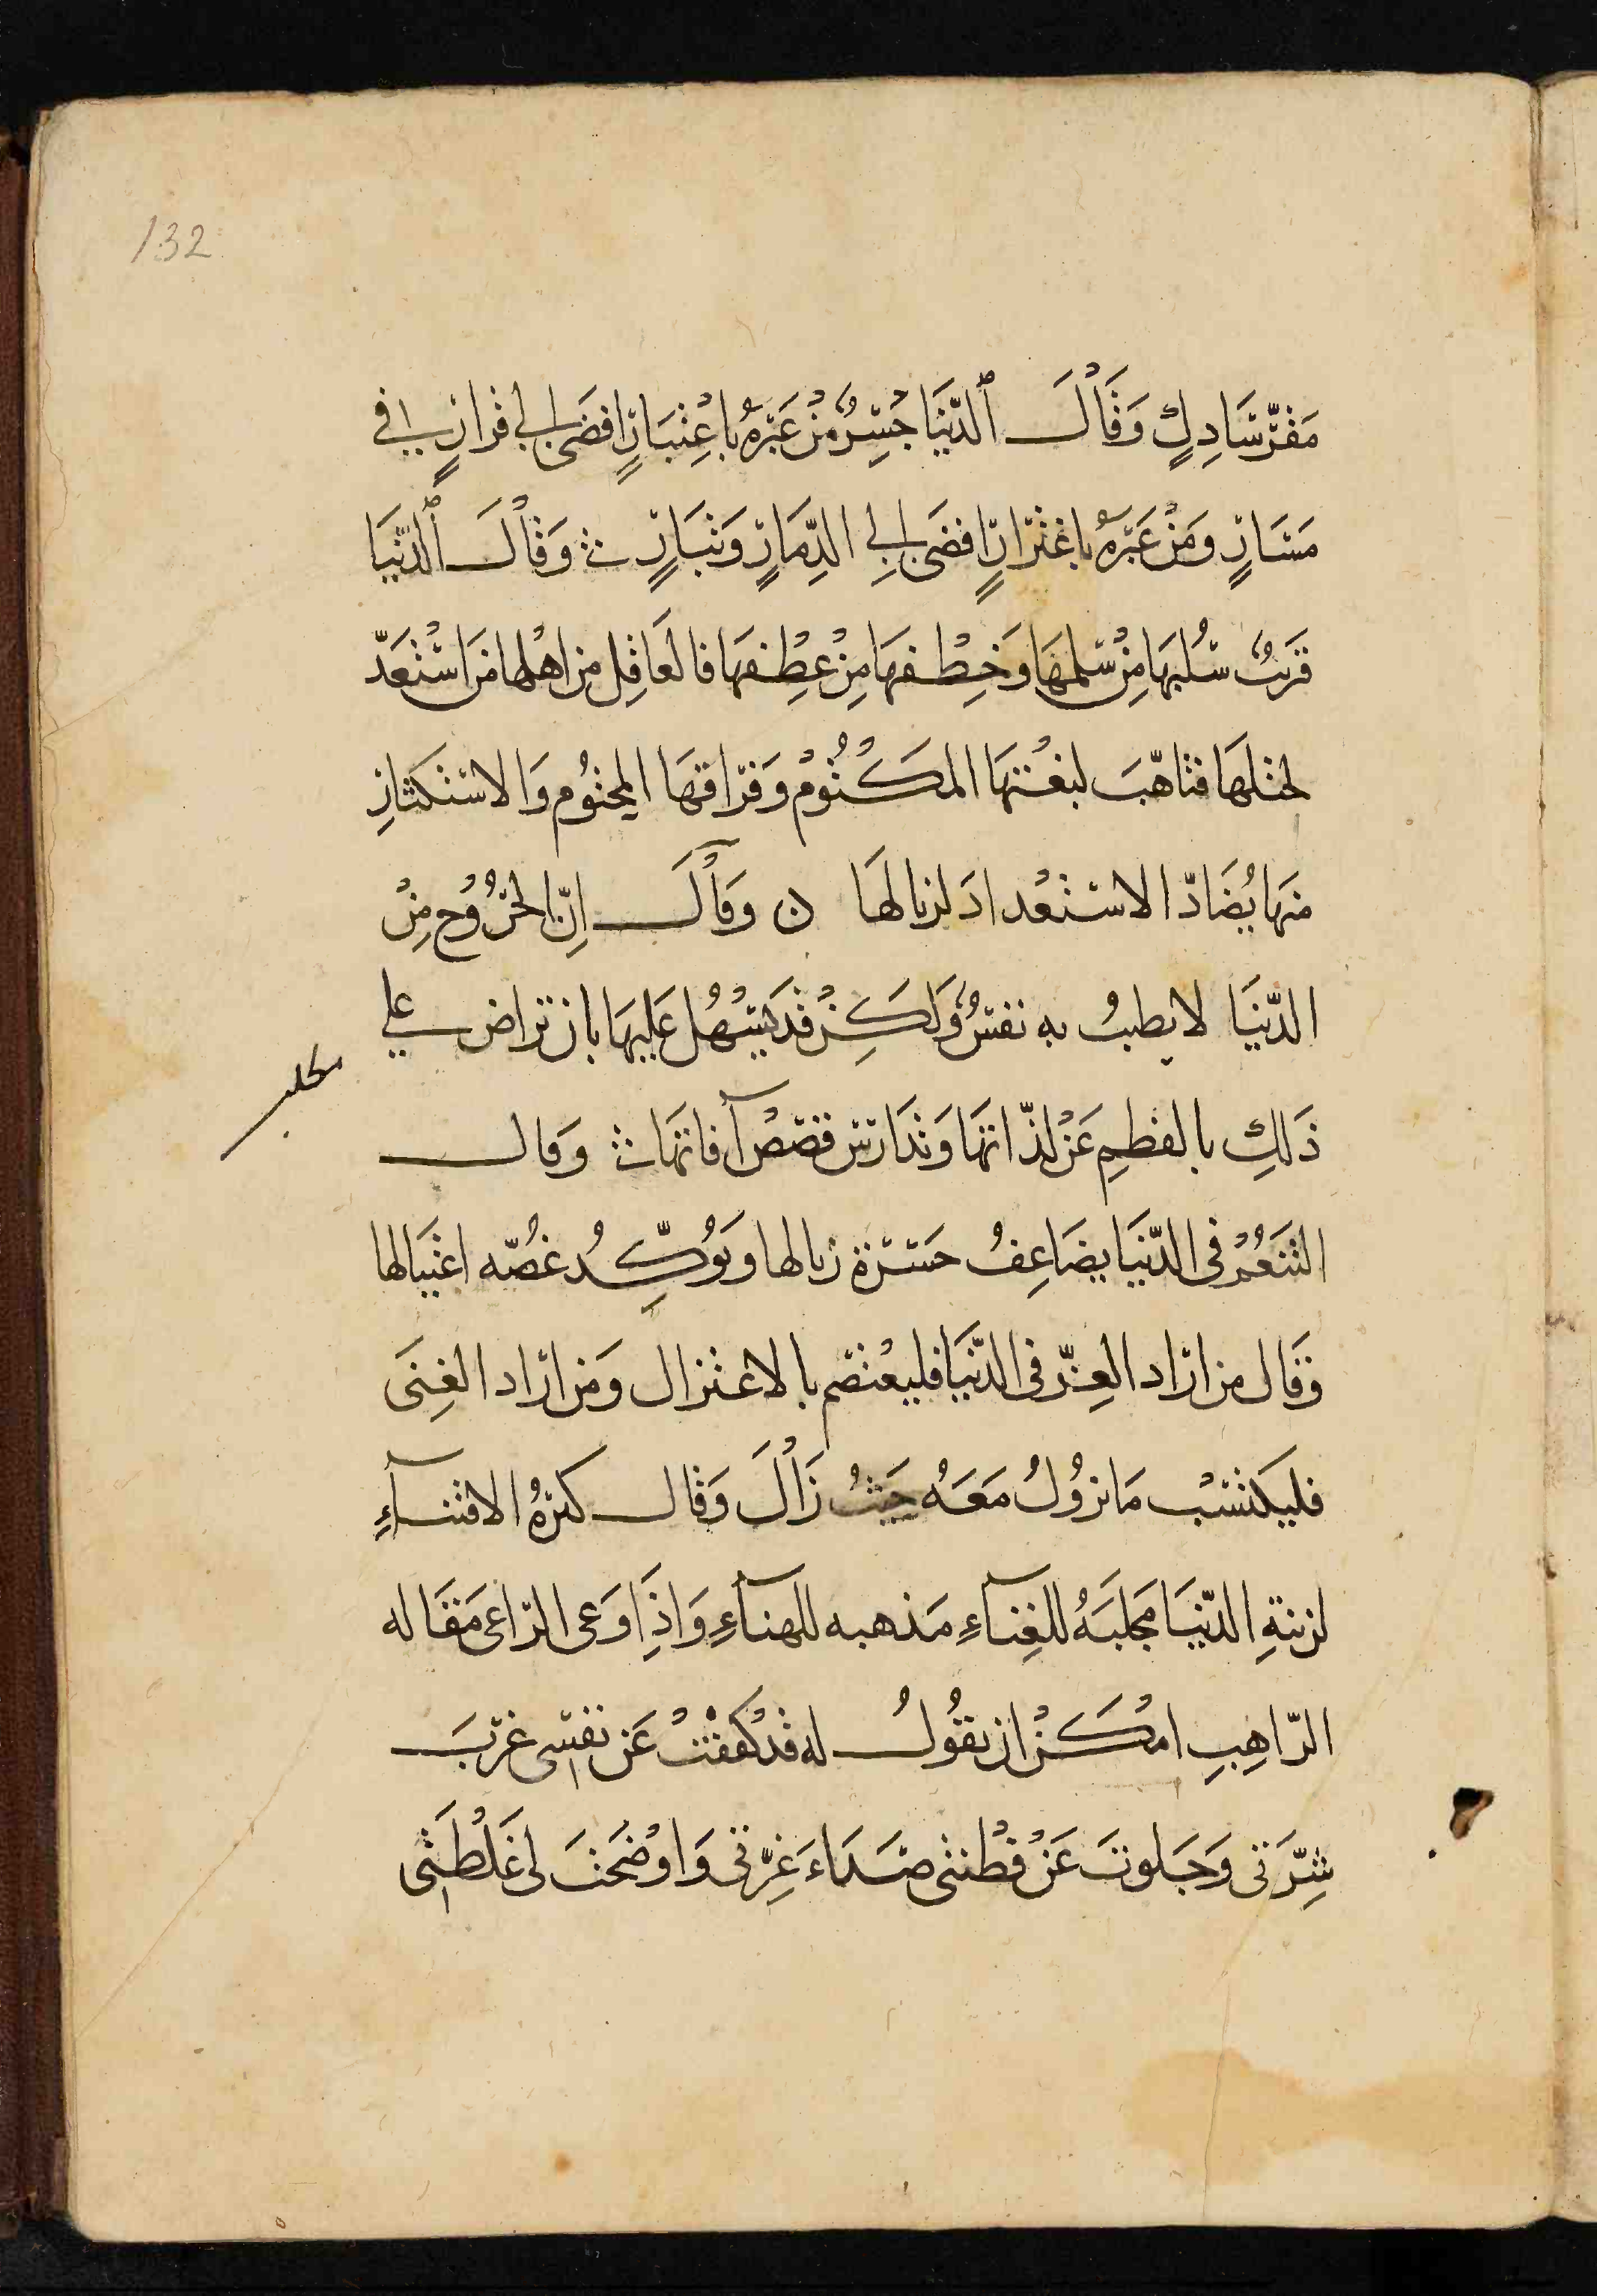 132
مَفرّ سَادِكٍ وَقَالَ الدُّنيَا جُسِرٌ مَنْ عَبَرَهُ بِاعْتِبَارٍ افضَى الى قرارٍ في
مَسَارٍّ وَمَنْ عَبَرَهُ باغترارٍ افضَى الى الدِّمَارِ وَتَبَارٍ وَقَالَ الدُّنيَا
قَرَبٌ سَلْبُهَا مِنْ سَلمهَا وَخِطْفهَا مِنْ عِطْفهَا فالعَاقِل مِن اهْلها مَن اسْتَعَدّ
لختلهَا فتاهّبَ لبغْتتهَا المَكْتُوْم وَفرَاقهَا المحتُوم وَالاستكثارِ
منهَا يُضَادّ الاستعْدادَ لزيالهَا ن وَقاْلَ اِنّ الخرُوْج مِنْ
الدّنيَا لا يطيبُ به نفسٌ وَلَكِنْ قدْ يَسْهُل عَليهَا بان تراض على
ذَلكِ بالفطمِ عَنْ لذّاتهَا وَتدَارَس قصصْ آفاتهَا وَقال
مطلب
التنَعُّمْ في الدّنيَا يضَاعِفُ حَسْرَة زيالها ويَؤُكِّدُ غُصّه اغتيالها
وَقَال من ارَاد العِزّ في الدّنيَا فليعْتصم بالاعتزال وَمَن ارَاد الغِنَى
فليكتسبْ مَا يزوُلُ مَعَهُ حَيثُ زَاْلَ وَقال كثرةُ الاقتنآءِ
لزينةِ الدّنيَا مَجلَبَهُ للغِنآءِ مَذهبه للهنآءِ وَاذِا وَعى الرّاعى مَقَاله
الرّاهِبِ امْكَنْ ان يقُولُ له قدْ كففْتْ عَن نفسِى غرْبَ
شِرَّتى وَجَلوتَ عَنْ فطْنتى صَدَاءَ غِرّتى وَاوْضَحتَ لى غَلْطَتى